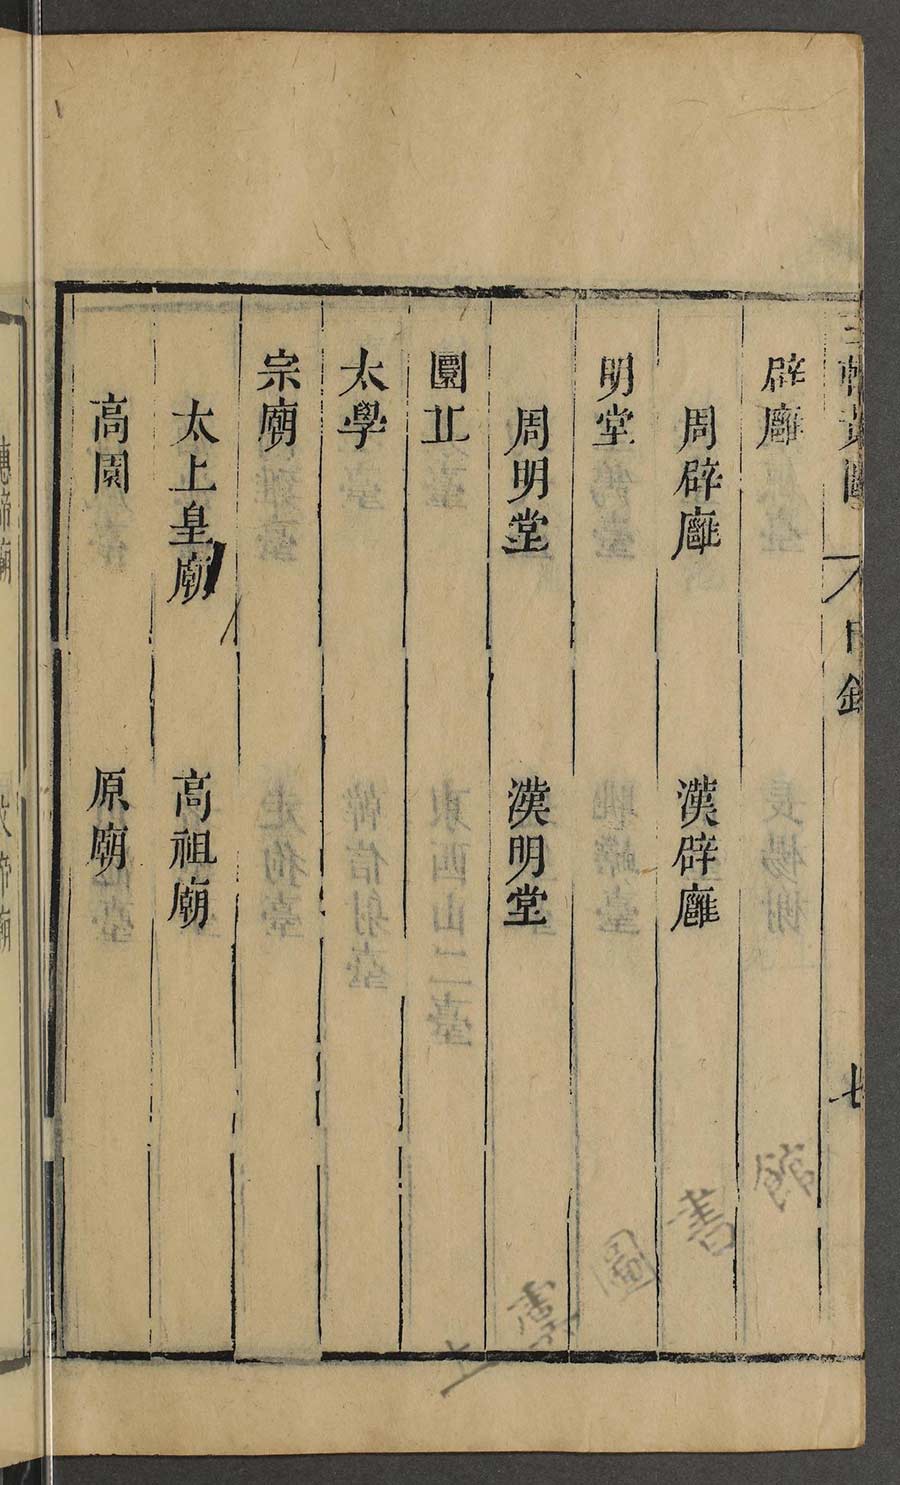 三輔黃圖 目錄 七
辟廱
周辟廱 漢辟廱
明堂
周明堂 漢明堂
圜丘
太學
宗廟
太上皇廟 高祖廟
高園 原廟
上虞圖書館